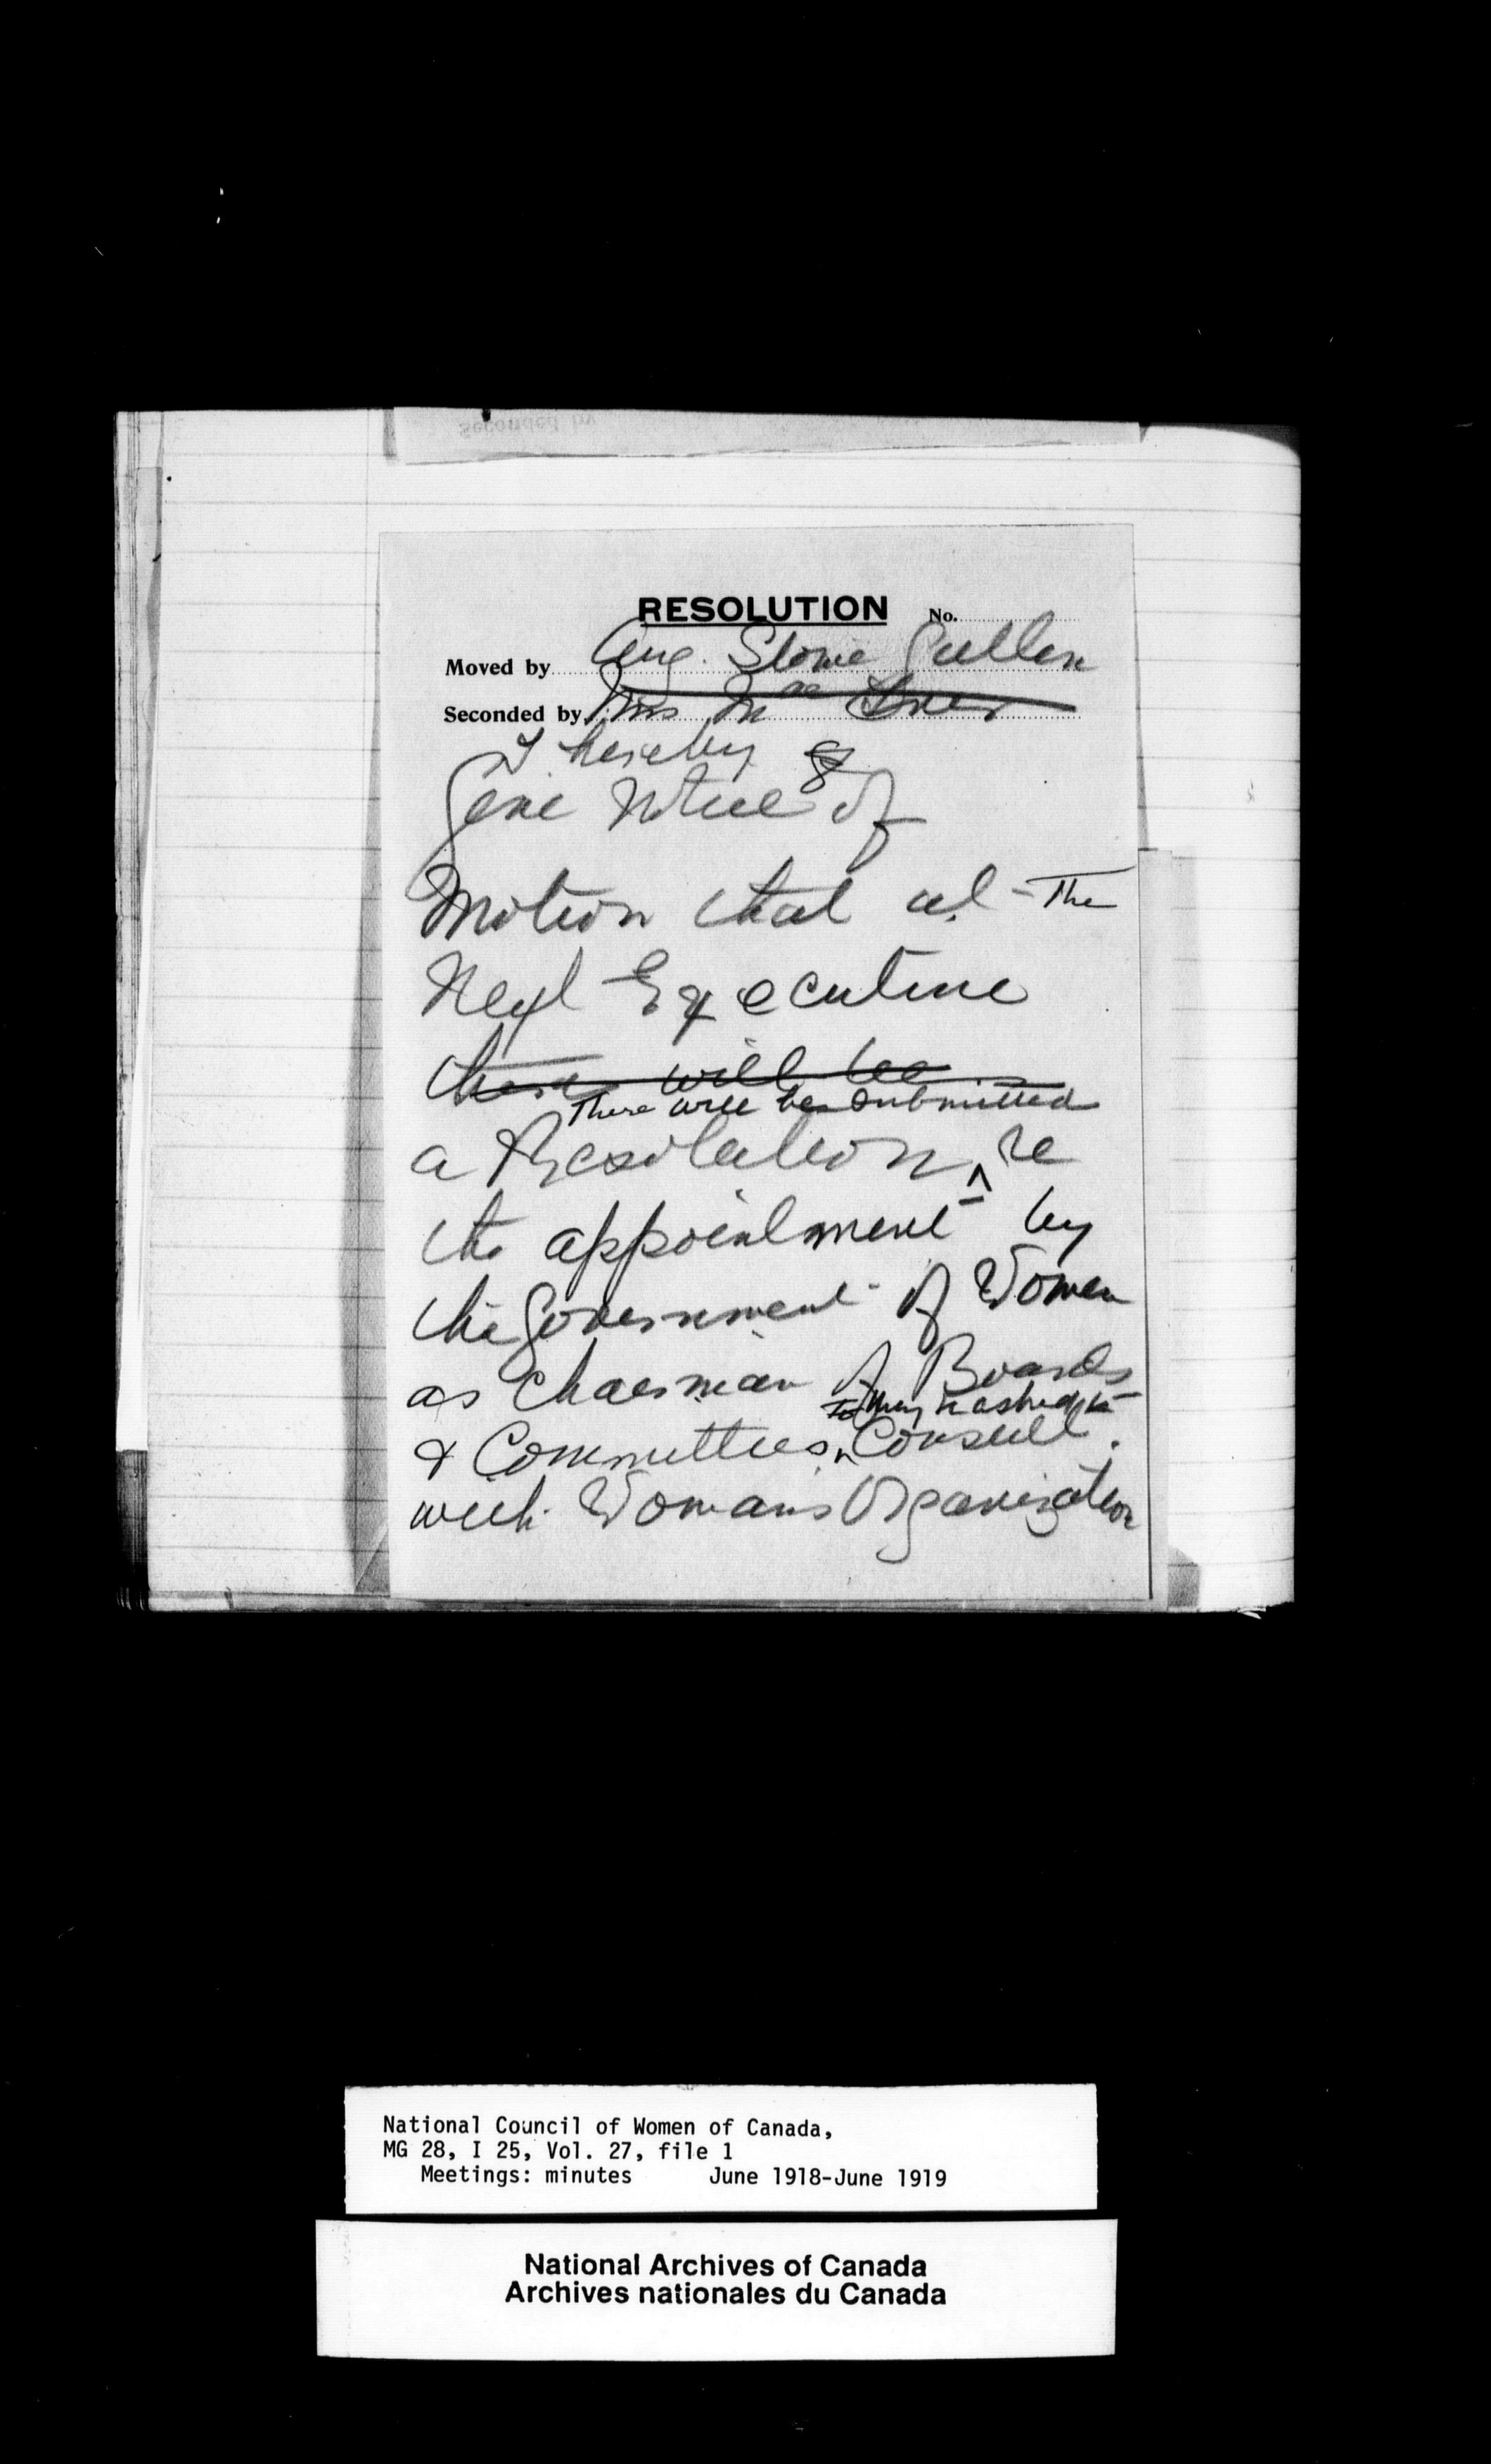 Seconded by
RESOLUTION No.
Moved by Aug. Stowe Gullen
Seconded by Mrs Mac
I hereby
Give Notice of
Motion that at The
Next Executive
there will be
There will be submitted
a Resolution ^ re
the appointment by
the Government of Women
as Chairman of Boards
To may be asked to
& Committees ^ Consult.
with Womans Organization
National Council of Women of Canada,
MG 28, I 25, Vol. 27, file 1
Meetings: minutes June 1918-June 1919
National Archives of Canada
Archives nationales du Canada